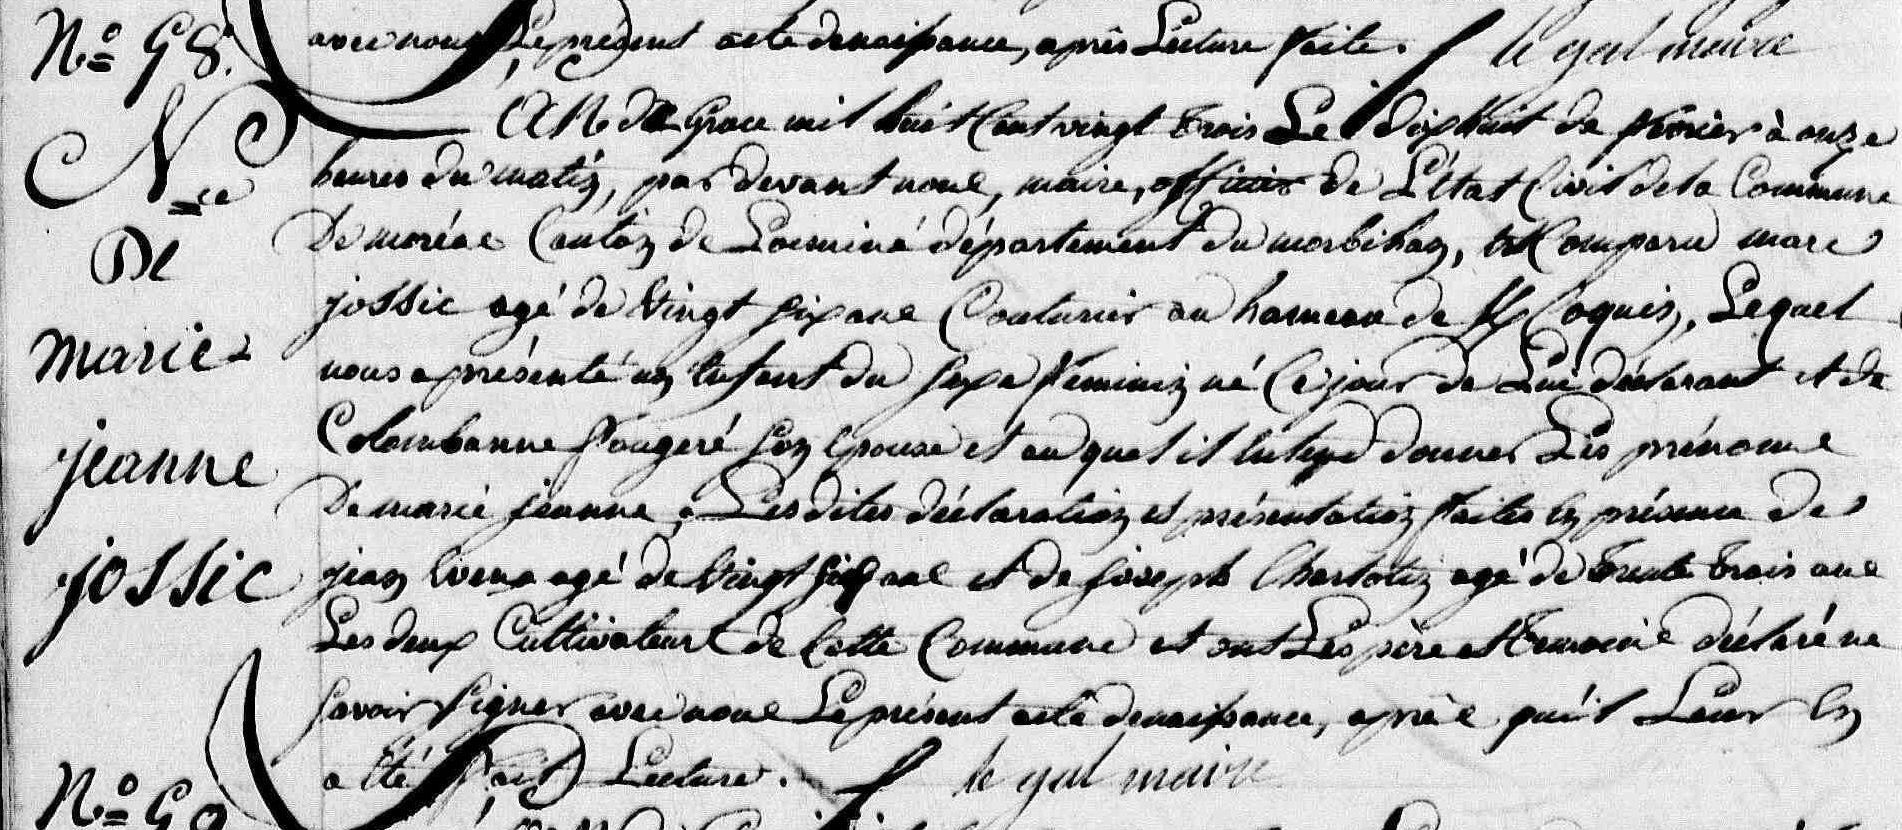 N.º 58.
avec nous, Le présent acte de naissance, après Lecture faite. le gal maire
N.ce
De
marie
jeanne
jossic
L'AN de Grace mil huit Cent vingt trois Le dixhuit de fevrier à onze
heures du matin, par devant nous, maire, officier de L'état Civil de la Commune
De moréac Canton de Locminé département du morbihan, est Comparu marc
jossic agé de Vingt six ans Couturier au hameau de Coquin, Lequel
nous a présenté un Enfant du sexe féminin né Ce jour de Lui déclarant et de
Colombanne fougeré son Epouse et auquel il Entend donner Les prénoms
De marie jeanne, Lesdites déclaration et présentation faites En présence de
jean Evenо agé de Vingt six ans et de joseph Charlotin agé de trente trois ans
Les deux Cultivateurs de Cette Commune et ont Les père et temoins déclaré ne
savoir signer avec nous Le présent acte de naissance, après qu'il Leur En
a Eté fait Lecture. le gal maire
N.º 59